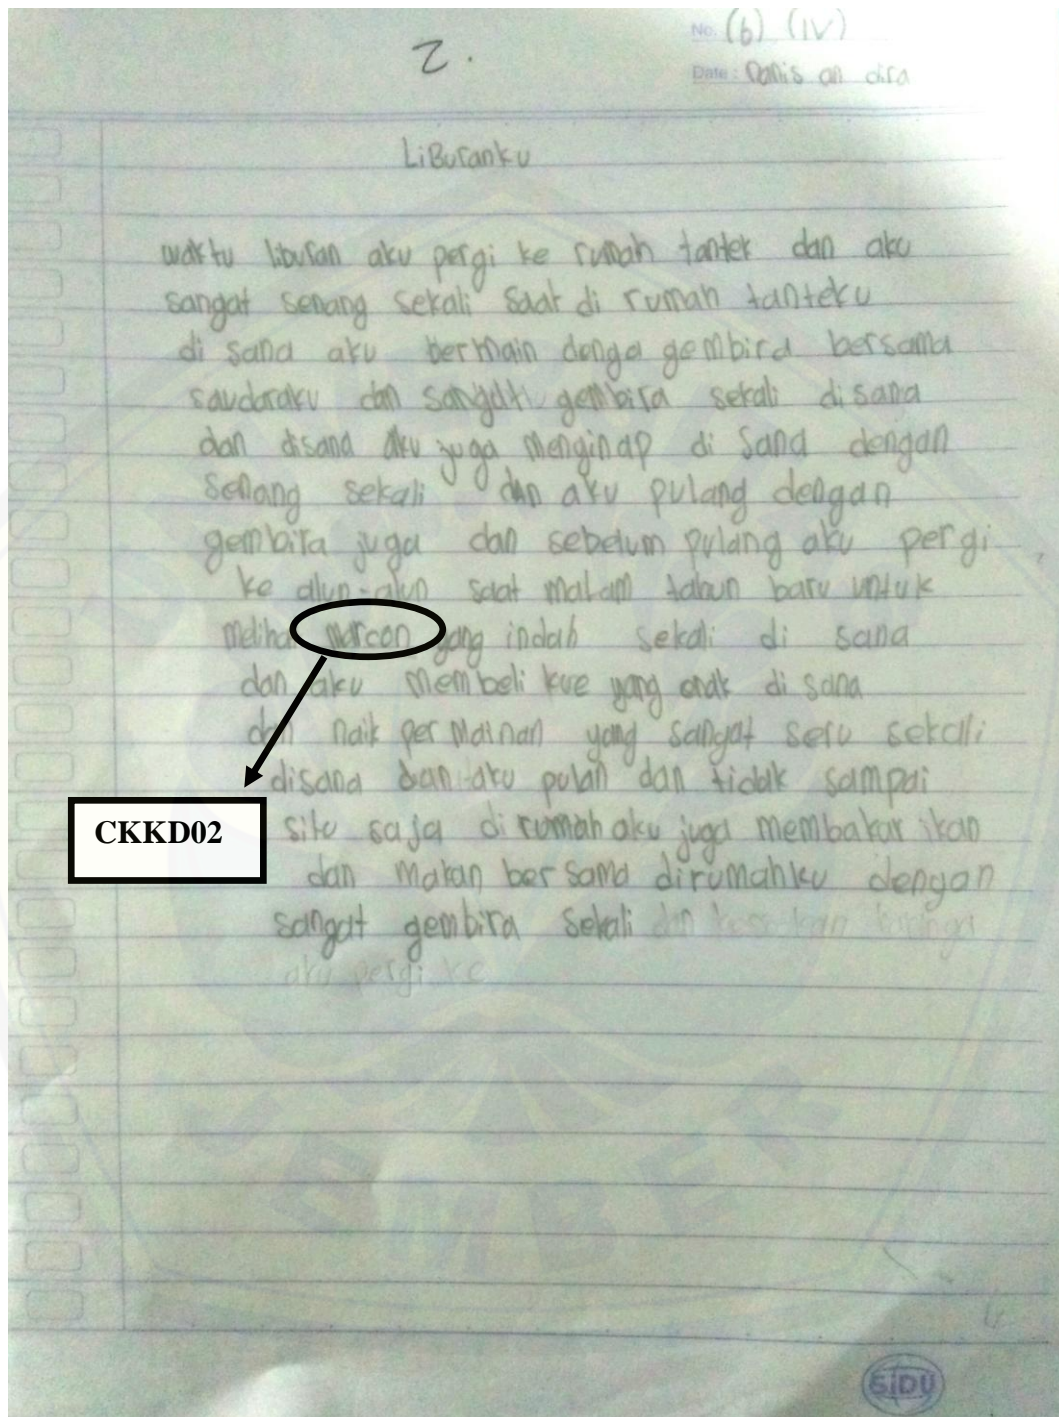 2.
No. (6) (IV)
Date: Danis an dira
LiBuranku
waktu liburan aku pergi ke rumah tantek dan aku
sangat senang sekali saat di rumah tanteku
di sana aku bermain denga gembira bersama
saudaraku dan gembira sekali disana
dan disana aku juga menginap di sana dengan
senang sekali dan aku pulang dengan
gembira juga dan sebelum pulang aku pergi
ke alun-alun saat malam tahun baru untuk
meliha marcon yang indah sekali di sana
dan aku membeli kue yang enak di sana
dan naik permainan yang sangat seru sekali
disana dan aku pulan dan tidak sampai
CKKD02
situ saja di rumah aku juga membakar ikan
dan makan bersama dirumahku dengan
sangat gembira sekali dan
aku pergi ke
JEMBER
SiDU